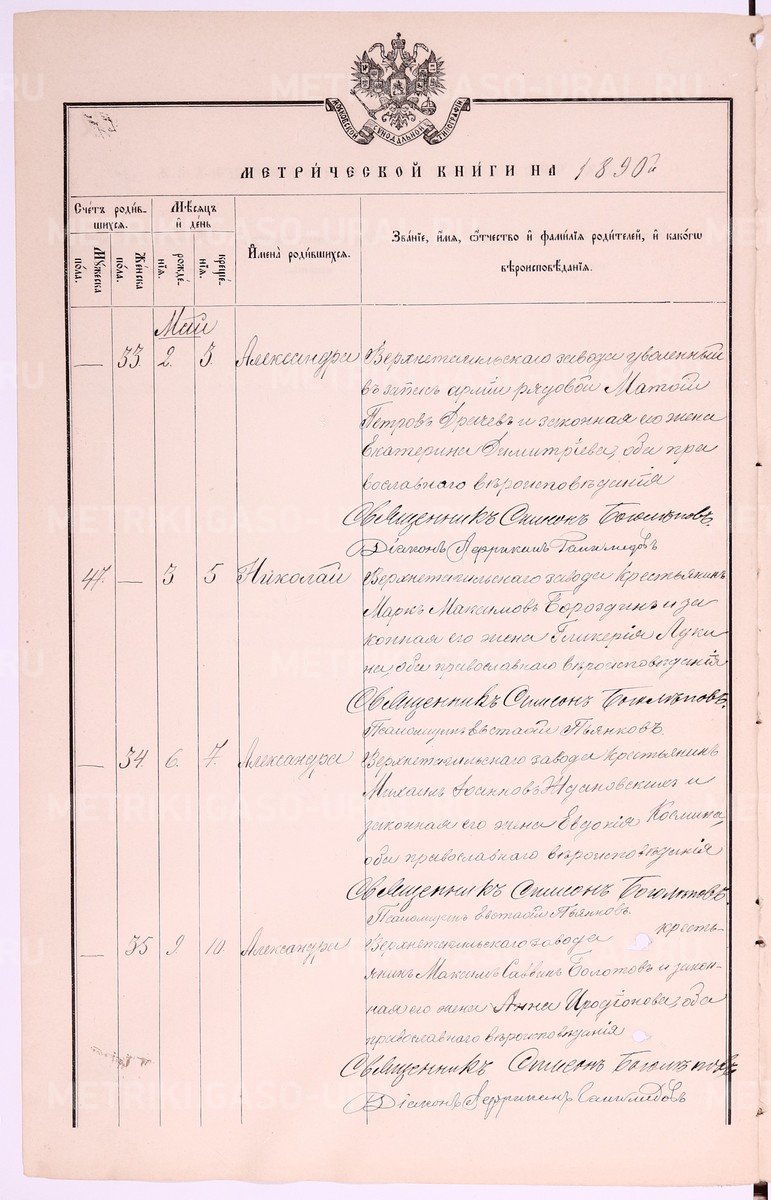 МОСКОВСКОЙ СѴНОДАЛЬНОЙ ТИПОГРАФІИ
МЕТРИ́ЧЕСКОЙ КНИ́ГИ НА 1890 г.
Сче́тъ роди́в-
шихся.
Мꙋ́жеска
по́ла.
Же́нска
по́ла.
Мѣ́сяцъ
и҆ де́нь
рожде́-
нїѧ.
креще́-
нїѧ.
И҆мена̀ роди́вшихся.
Зва́нїе, и҆́мя, ѻ҆́тчество и҆ фами́лїя роди́телей, и҆ како́гѡ
вѣроисповѣ́данїя.
Май
— 33. 2. 3. Александра Верхнетагильскаго завода уволенный
въ запасъ арміи рядовой Матөій
Петровъ Драчевъ и законная его жена
Екатерина Димитріева, оба пра
вославнаго вѣроисповѣданія
Священникъ Симеонъ Боголѣповъ.
Діаконъ Африканъ
47. — 3 5 Николай Верхнетагильскаго завода крестьянинъ
Маркъ Максимовъ Бороздинъ и за
конная его жена Гликерія Луки
на, оба православнаго вѣроисповѣданія
Священникъ Симеонъ Боголѣповъ.
Псаломщикъ Евстафій Пьянковъ.
— 34. 6. 7. Александра Верхнетагильскаго завода крестьянинъ
Михаилъ Іоанновъ Ждановскихъ и
законная его жена Евдокія Космина,
оба православнаго вѣроисповѣданія
Священникъ Симеонъ Боголѣповъ.
Псаломщикъ Евстафій Пьянковъ.
— 35 9. 10. Александра Верхнетагильскаго завода кресть-
янинъ Максимъ Саввинъ Болотовъ и закон-
ная его жена Анна Иродіонова, оба
православнаго вѣроисповѣданія
Священникъ Симеонъ Боголѣповъ
Діаконъ Африканъ
METRIKI.GASO-URAL.RU